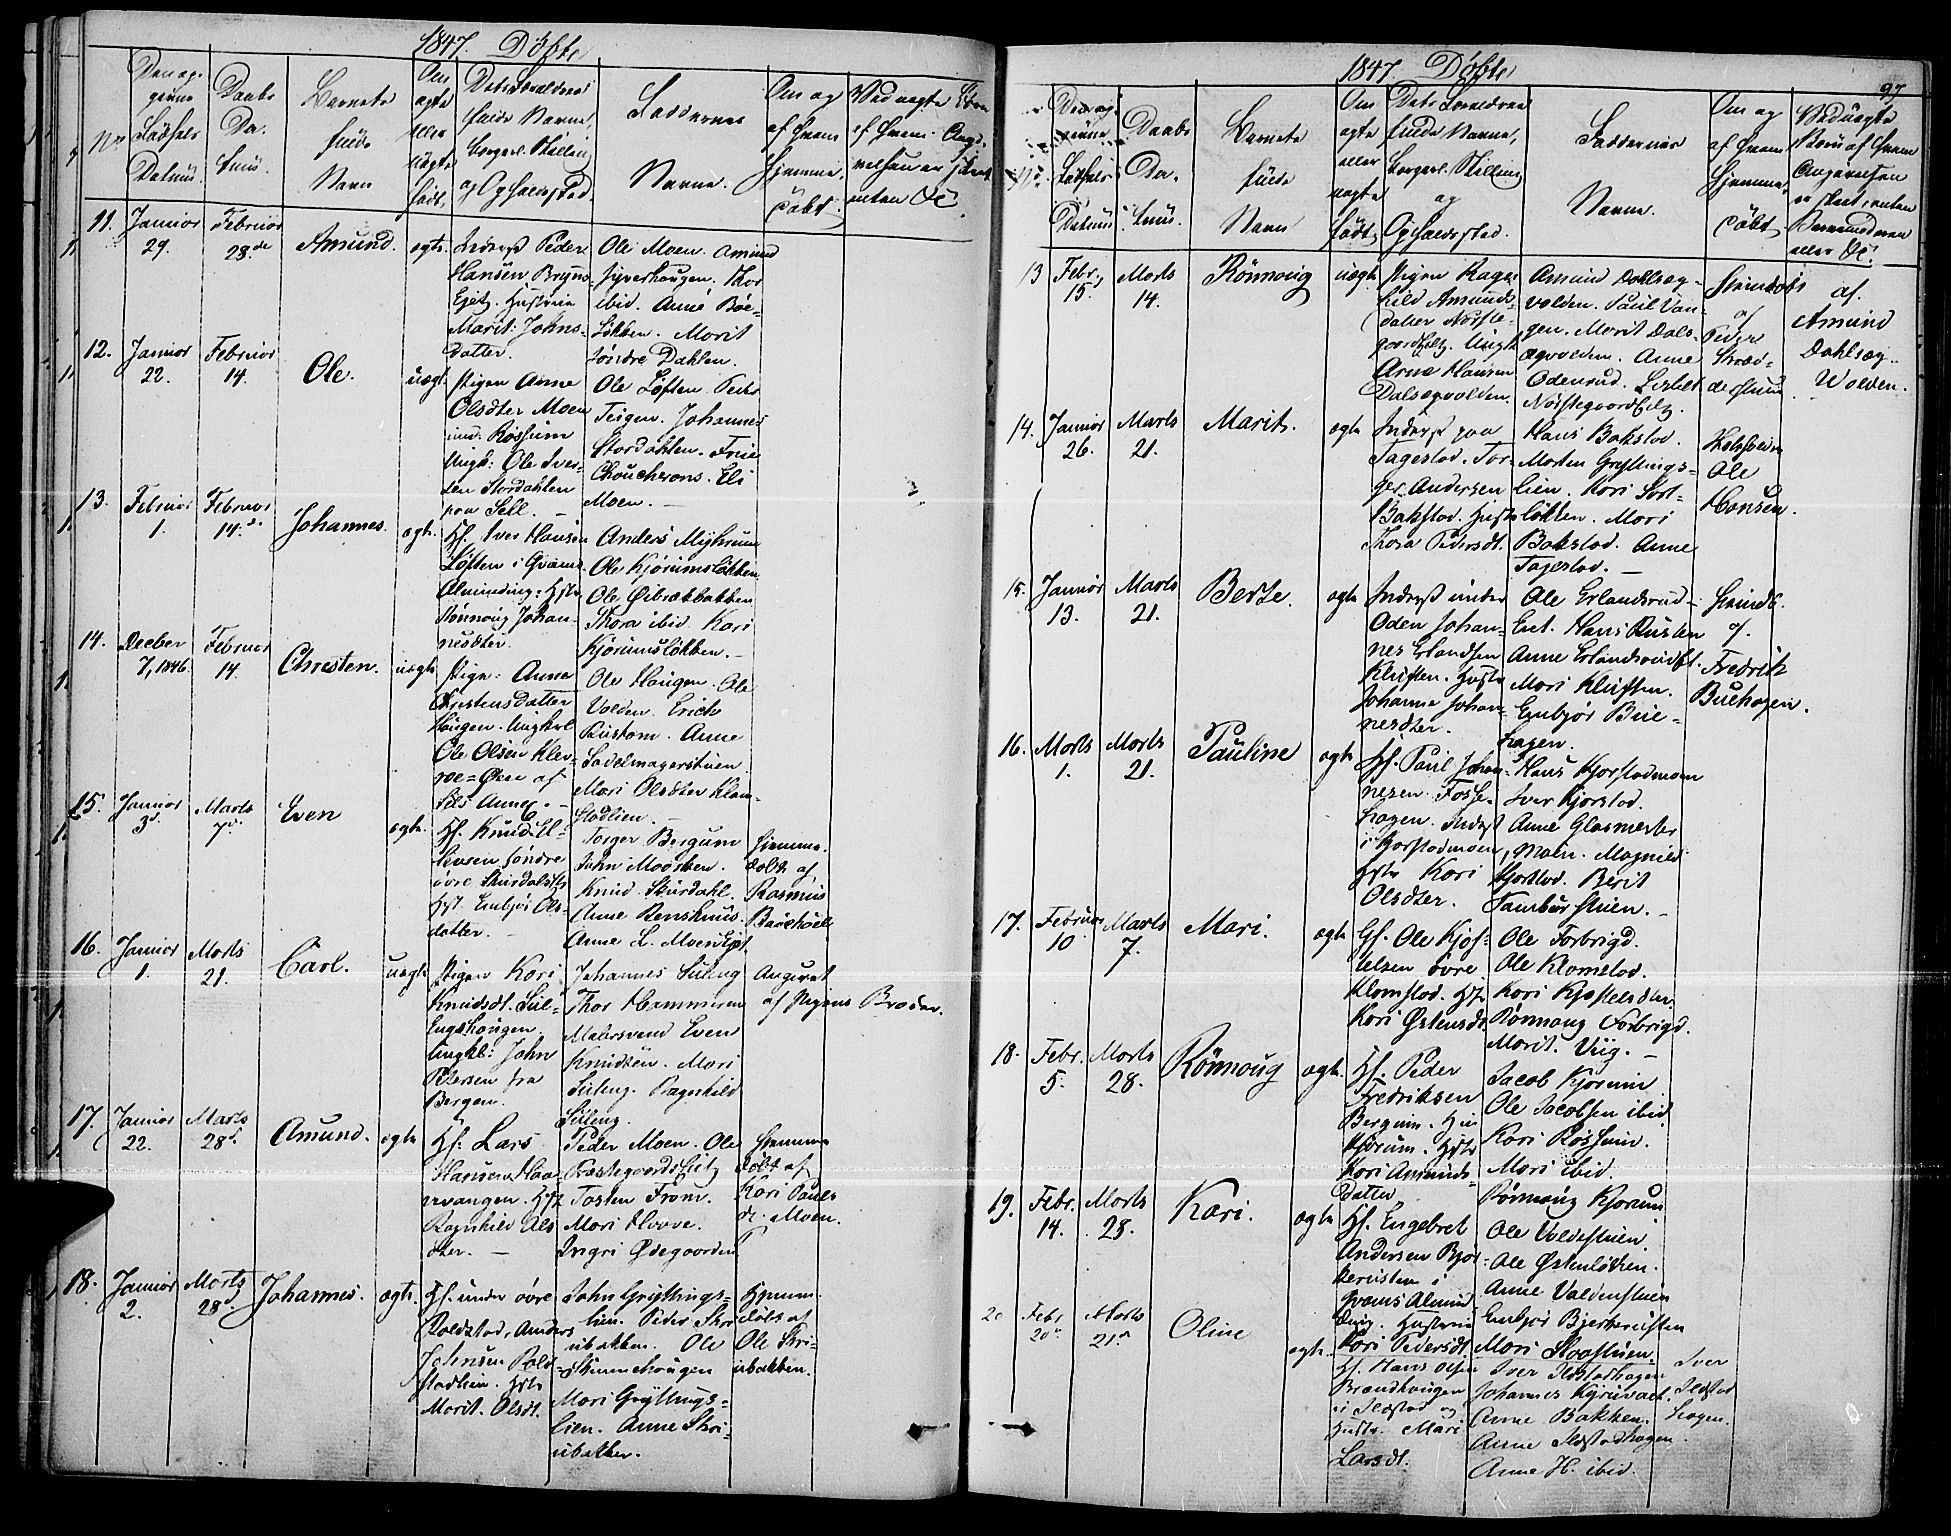 1847. Döbte
No
Datum.
Daabs
Da-
tum.
Barnets
fulde
Navn
Om
ægte
eller
uægte
født.
fulde Navne,
borgerl. Stilling
og Opholdssted.
Faddernes
Navne.
Om og
af hvem
hjemme-
døbt.
11. Januar 29. Februar 28de Amund. ægte.
Inderst Peder
Hansen Bryns-
Ejet. Hustrue
Marit Johns-
datter.
Ole Moen. Amund
haugen. Thor
ibid. Anne Böe-
Løkken. Marit
søndre Dahlen.
12. Januar 22. Februar 14. Ole. uægte.
Pigen Anne
Olsdter Moen
und. Rossum
Ungk: Ole Iver-
sen Stordahlen
paa Sell.
Ole Loften. Peder
Teigen. Johannes
Stordahlen. Frue
Choucherons. Eli
Moen.
13. Februar 1. Februar 14d. Johannes. ægte.
Hf. Iver Hansen
Loften i Qvams
Alminding: Hstr
Rønnoug Johan-
nesdter.
Anders Myhrum
Ole Kjörumsløkken
Ole Öibrækbakken
Thora ibid. Kari
Kjörumsløkken.
14. Decber 7, 1846. Februar 14. Christen. uægte
Pige: Anne
Christensdatter
Haugen. Ungkarl
Ole Olsen Klev-
roe-Øien af
Sels Annex.
Ole Haugen. Ole
Volden. Erich
Rustom. Anne
Sadelmagerstuen
Mari Olsdter Klom-
stadlien.
15. Januar 3d. Marts 7d. Even ægte.
Hf. Knud El-
lensen söndre
øvre Skurdals
Hst. Embjør Ols-
datter.
Torger Bergum
John Moosken.
Knud Skurdahl.
Anne Renshuus.
Anne L. Moen Ejet
Hjemme-
døbt af
Rasmus
16. Januar 1. Marts 21. Carl. uægte
Pigen Kari
Knudsdt. Sul-
Engshaugen.
Ungkl: John
Petersen fra
Bergen.
Johannes Suleng
Thor Hammeren
Malersvend Even
Knudsen. Mari
Suleng. Ragnhild
Suleng.
Angivet
af Pigens Broder.
17. Januar 22. Marts 28d. Amund. ægte
Hf. Lars
Hansen Haa-
vevangen. Hst
Ragnhild Ols
dter.
Peder Moen. Ole
Præstegaards Ejet
Tosten From.
Mari Hoove.
Ingri Ødegaarden
Hjemme
døbt af
Kari Pauls
dt. Moen.
18. Januar 2. Marts 28d. Johannes. ægte.
Hf. under øvre
Roldstad, Anders
Johnsen Rold-
stadlien. Hstr
Marit Olsdt.
John Gryttings-
lien. Peder Skri
ubakken. Ole
Skumehougen
Mari Gryttings-
lien. Anne Skri-
ubakken.
Hjemme-
døbt af
Ole Skri-
ubakken.
1847. Döbte
97
Datum
Daabs
Da-
tum.
Barnets
fulde
Navn
Om
ægte
eller
uægte
født
fulde Navne,
borgerl. Stilling
og
Opholdssted.
Faddernes
Navne.
Om og
af hvem
hjemme-
døbt
13 Febr. 15. Marts 14. Rönnoug uægte.
Pigen Ragn-
hild Amunds-
datter Nørste-
gaardsEjet. Ungk
Arne Hansen
Dalsegvolden.
Amund Dahlseg-
volden. Paul Van-
gen. Marit Dals-
egvolden. Anne
Odenrud. Lisbet
NørstegaardsEjet.
Hjemdøbt
af
Peder
Skræd-
derstuen
af
Amund
Dahlseg-
Wolden.
14. Januar 26. Marts 21. Marit. ægte
Inderst paa
Tagestad. Tor-
ger Andersen
Bakstad. Hustr
Thora Pedersdt.
Hans Bakstad.
Morten Gryttings-
lien. Kari Sort-
løkken. Mari
Bakstad. Anne
Tagestad.
Ole
Hansen.
15. Januar 13. Marts 21. Berte. ægte
Inderst under
Oden Johan-
nes Erlandsen
Kluften. Hustr
Johanne Johan-
nesdter.
Ole Erlandsrud-
Ent. Hans Rusten
Anne Erlandsrud
Mari Kluften.
Embjör Bue-
hagen.
Fredrik
Buehagen.
16. Marts 1. Marts 21. Pauline ægte
Hf. Paul Johan-
nesen Fosse-
hagen. Inderst
i Kjorstadmoen
Hstr Kari
Olsdter.
Hans Kjorstadmoen
Iver Kjorstad.
Anne Glasmester
Moen. Magnild
Kjorstad. Berit
Tamburstuen.
17. Februar 10. Marts 7. Mari. ægte
Gf. Ole Kjös-
telsen övre
Klomstad. Hst
Kari Østensdt
Ole Forbrigd.
Ole Klomstad.
Kari Kjøstelsdter
Rønnoug Forbrigd.
Marit Viig.
18. Febr. 5. Marts 28. Rønnoug ægte.
Hf. Peder
Fredriksen
Bergum.
Kjørum. Hstr
Kari Amunds-
datter
Jacob Kjorum
Ole Jacobsen ibid
Kari Rossum.
Mari ibid.
Rønnoug Kjorum
19. Febr. 14. Marts 28. Kari. ægte
Hf. Engebret
Andersen Bjør-
kerusten i
Qvams Almin-
ding. Hustrue
Kari Pedersdt
Ole Voldestuen.
Ole Østenløkken.
Anne Voldenstuen
Embjør Bjerkerusten
Mari Staastuen.
20 Febr 20d. Marts 21d. Oline ægte.
Hf. Hans Olsen
Brandhaugen
i Ildstad og
Hustr. Mari
Larsdt.
Iver Ildstadhagen
Johannes
Anne Bakken.
Anne Ildstadhagen
Anne H. ibid.
Iver
Ildstad
hagen.